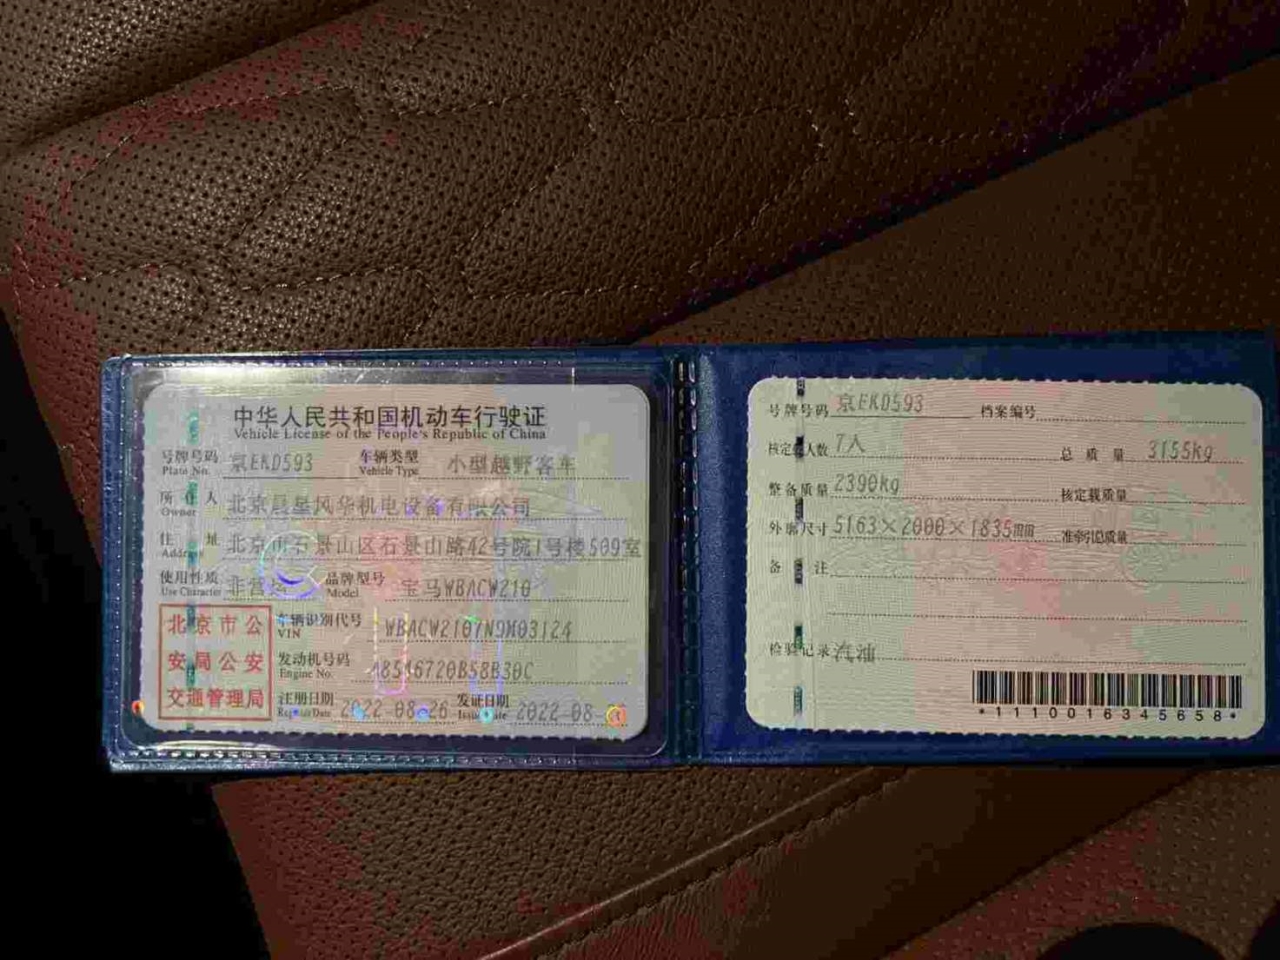 中华人民共和国机动车行驶证
Vehicle License of the People's Republic of China
号牌号码 京EKD593 车辆类型 小型越野客车
Plate No. Vehicle Type
所有人 北京晨星风华机电设备有限公司
Owner
住址 北京市石景山区石景山路42号院1号楼509室
Address
使用性质 非营运 品牌型号 宝马WBACW210
Use Character Model
北京市公
安局公安
交通管理局
车辆识别代号 WBACW2107N9M03124
VIN
发动机号码 A8546720B58B30C
Engine No.
注册日期 2022-08-26 发证日期 2022-08-
Register Date Issue Date
号牌号码 京EKD593 档案编号
核定载人数 7人 总质量 3155kg
整备质量 2390kg 核定载质量
外廓尺寸 5163×2000×1835mm 准牵引总质量
备注
检验记录 汽油
*1110016345658*